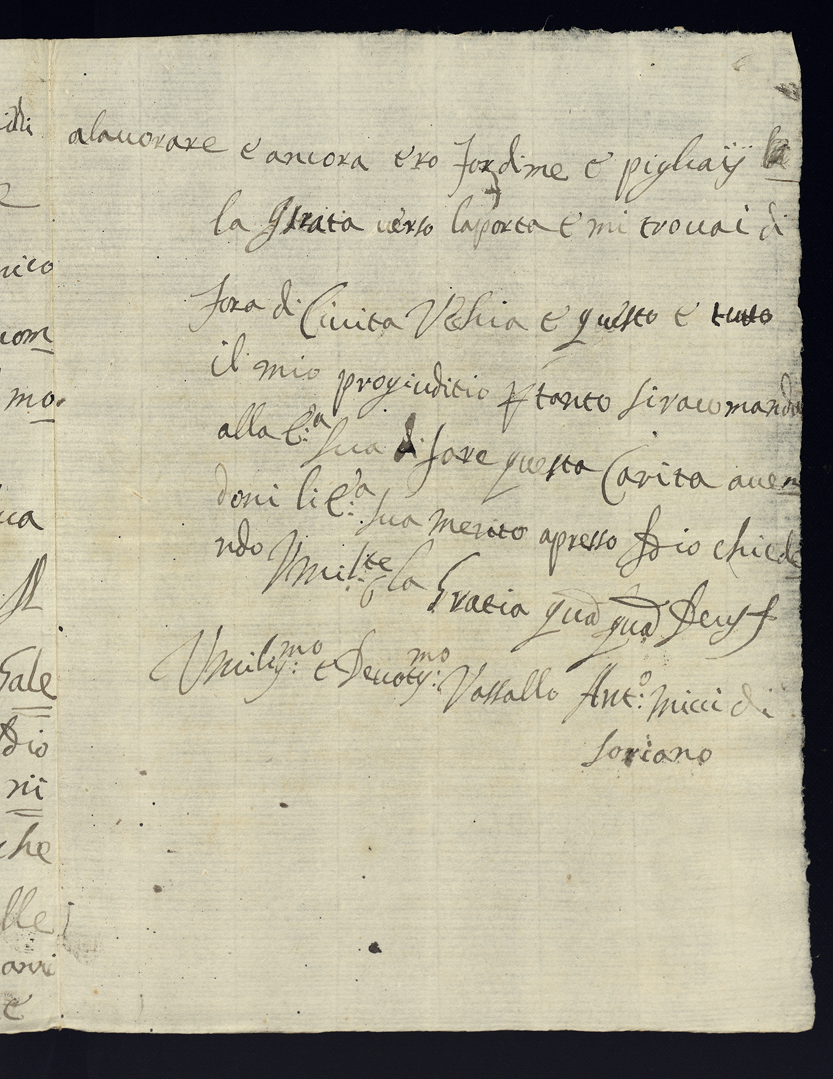 alauorare e ancora ero Jordine e pigliaij la
la Strata uerso laporta e mi trouai di
fora di Ciuita Vehia e questo e tutto
il mio progiuditio ptanto siracomanda
alla E:a Sua di fare questa Carita auen
doni li E:a Sua merito apresso Idio chiede
ndo Vmilte la Gratia quā quā Deus
Vmilis:mo e Deuotis:mo Vassallo Ant:o Micci di
Soriano
nico
mo.
Gale
Dio
ni
che
lle
e